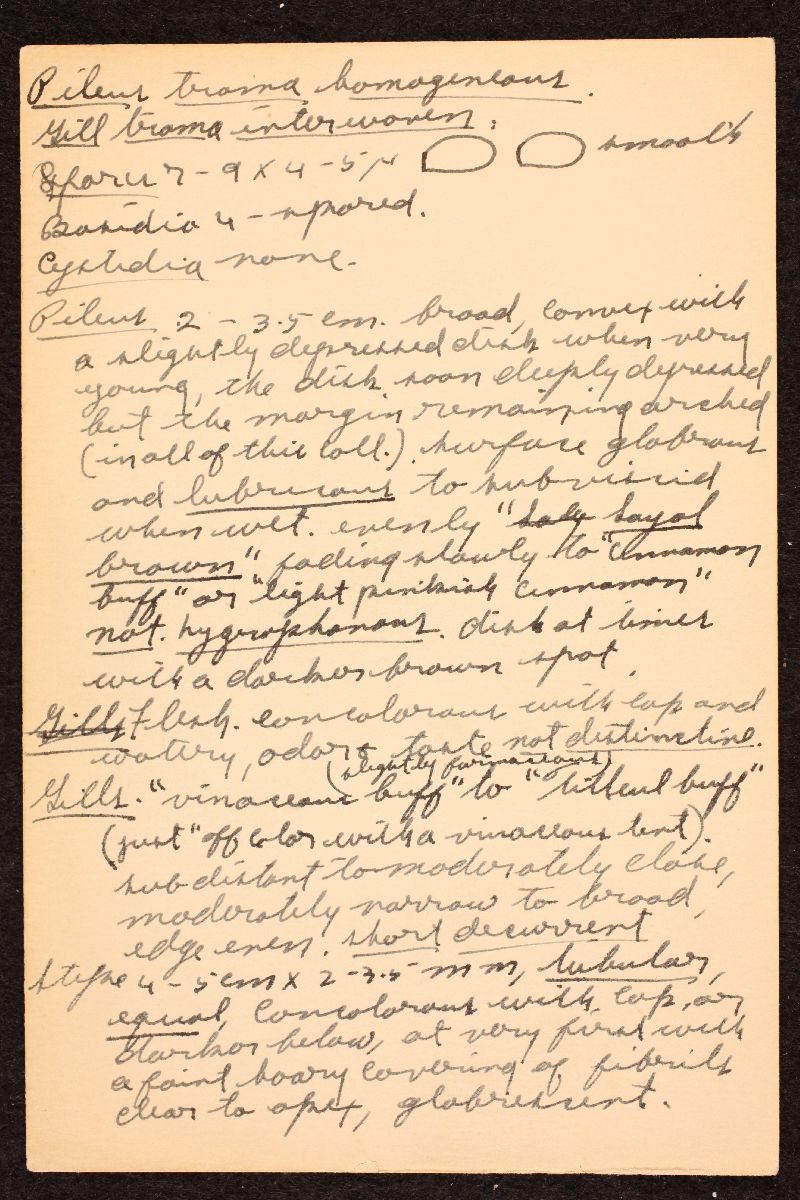 Pileus trama homogeneous.
Gill trama interwoven.
Spores 7-9 x 4-5 µ smooth
Basidia 4-spored.
Cystidia none.
Pileus 2-3.5 cm. broad, convex with
a slightly depressed disk when very
young, the disk soon deeply depressed
but the margin remaining arched
(in all of this coll.). surface glabrous
and lubricous to subviscid
when wet. evenly " sayal
brown" fading slowly to "cinnamon
buff" or "light pinkish cinnamon"
not. hygrophanous. disk at times
with a darker brown spot.
Gills Flesh. concolorous with cap and
watery, odor & taste not distinctive.
(slightly farinaceous)
Gills. "vinaceous buff" to "tilleul buff"
(just "off color with a vinaceous tint).
subdistant to moderately close,
moderately narrow to broad,
edge even. short decurrent
Stipe 4-5 cm x 2-3.5 mm, tubular,
equal, concolorous with cap, or
darker below, at very first with
a faint hoary covering of fibrils
clear to apex, glabrescent.